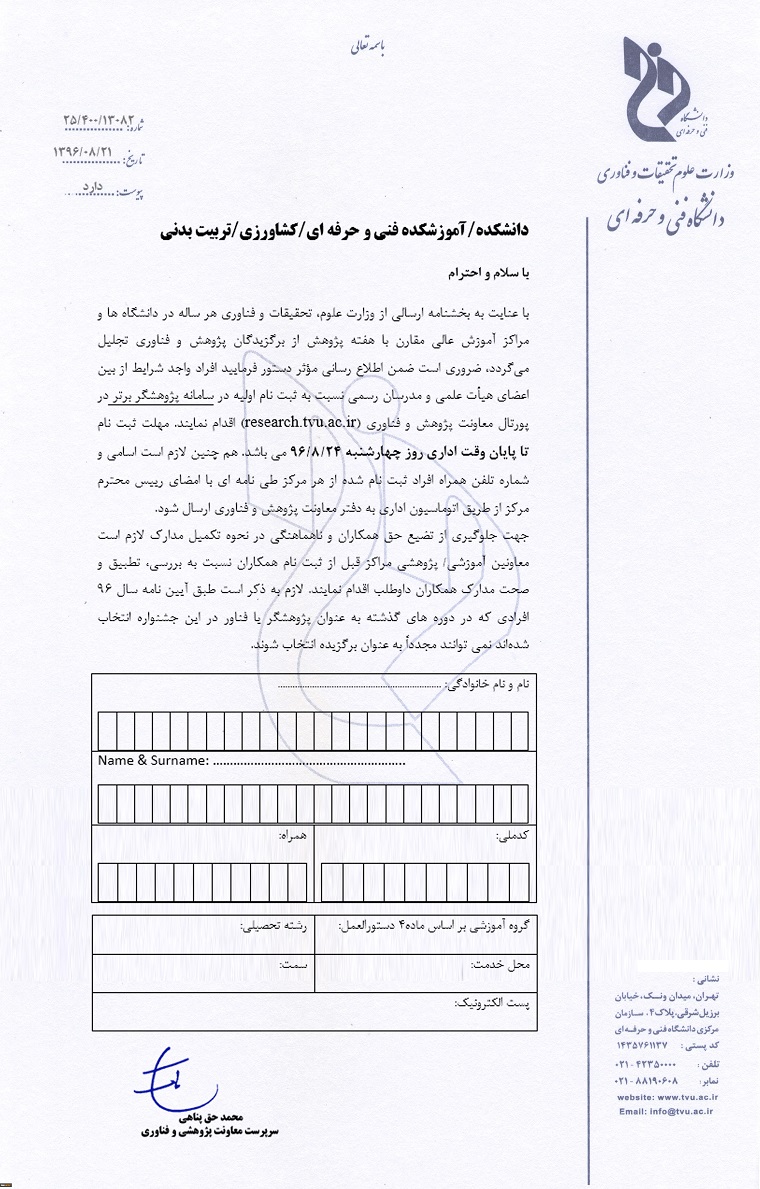 باسمه تعالی
دانشگاه
فنی و حرفه ای
وزارت علوم تحقیقات و فناوری
دانشگاه فنی و حرفه ای
شماره: ۲۵/۴۰۰/۱۳۰۸۲
تاریخ: ۱۳۹۶/۰۸/۲۱
پیوست: دارد
دانشکده/ آموزشکده فنی و حرفه ای/کشاورزی/تربیت بدنی
با سلام و احترام
با عنایت به بخشنامه ارسالی از وزارت علوم، تحقیقات و فناوری هر ساله در دانشگاه ها و
مراکز آموزش عالی مقارن با هفته پژوهش از برگزیدگان پژوهش و فناوری تجلیل
می‌گردد، ضروری است ضمن اطلاع رسانی مؤثر دستور فرمایید افراد واجد شرایط از بین
اعضای هیأت علمی و مدرسان رسمی نسبت به ثبت نام اولیه در سامانه پژوهشگر برتر در
پورتال معاونت پژوهش و فناوری (research.tvu.ac.ir) اقدام نمایند. مهلت ثبت نام
تا پایان وقت اداری روز چهارشنبه ۹۶/۸/۲۴ می باشد. هم چنین لازم است اسامی و
شماره تلفن همراه افراد ثبت نام شده از هر مرکز طی نامه ای با امضای رییس محترم
مرکز از طریق اتوماسیون اداری به دفتر معاونت پژوهش و فناوری ارسال شود.
جهت جلوگیری از تضیع حق همکاران و ناهماهنگی در نحوه تکمیل مدارک لازم است
معاونین آموزشی/ پژوهشی مراکز قبل از ثبت نام همکاران نسبت به بررسی، تطبیق و
صحت مدارک همکاران داوطلب اقدام نمایند. لازم به ذکر است طبق آیین نامه سال ۹۶
افرادی که در دوره های گذشته به عنوان پژوهشگر یا فناور در این جشنواره انتخاب
شده‌اند نمی توانند مجدداً به عنوان برگزیده انتخاب شوند.
نام و نام خانوادگی: ............................................................
Name & Surname: ........................................................
کدملی:
همراه:
گروه آموزشی بر اساس ماده۴ دستورالعمل:
رشته تحصیلی:
محل خدمت:
سمت:
پست الکترونیک:
محمد حق پناهی
سرپرست معاونت پژوهشی و فناوری
نشانی :
تهران، میدان ونک، خیابان
برزیل شرقی، پلاک۴، سازمان
مرکزی دانشگاه فنی و حرفه‌ای
کد پستی : ۱۴۳۵۷۶۱۱۳۷
تلفن : ۰۲۱-۴۲۳۵۰۰۰۰
نمابر: ۰۲۱-۸۸۱۹۰۶۰۸
website: www.tvu.ac.ir
Email: info@tvu.ac.ir